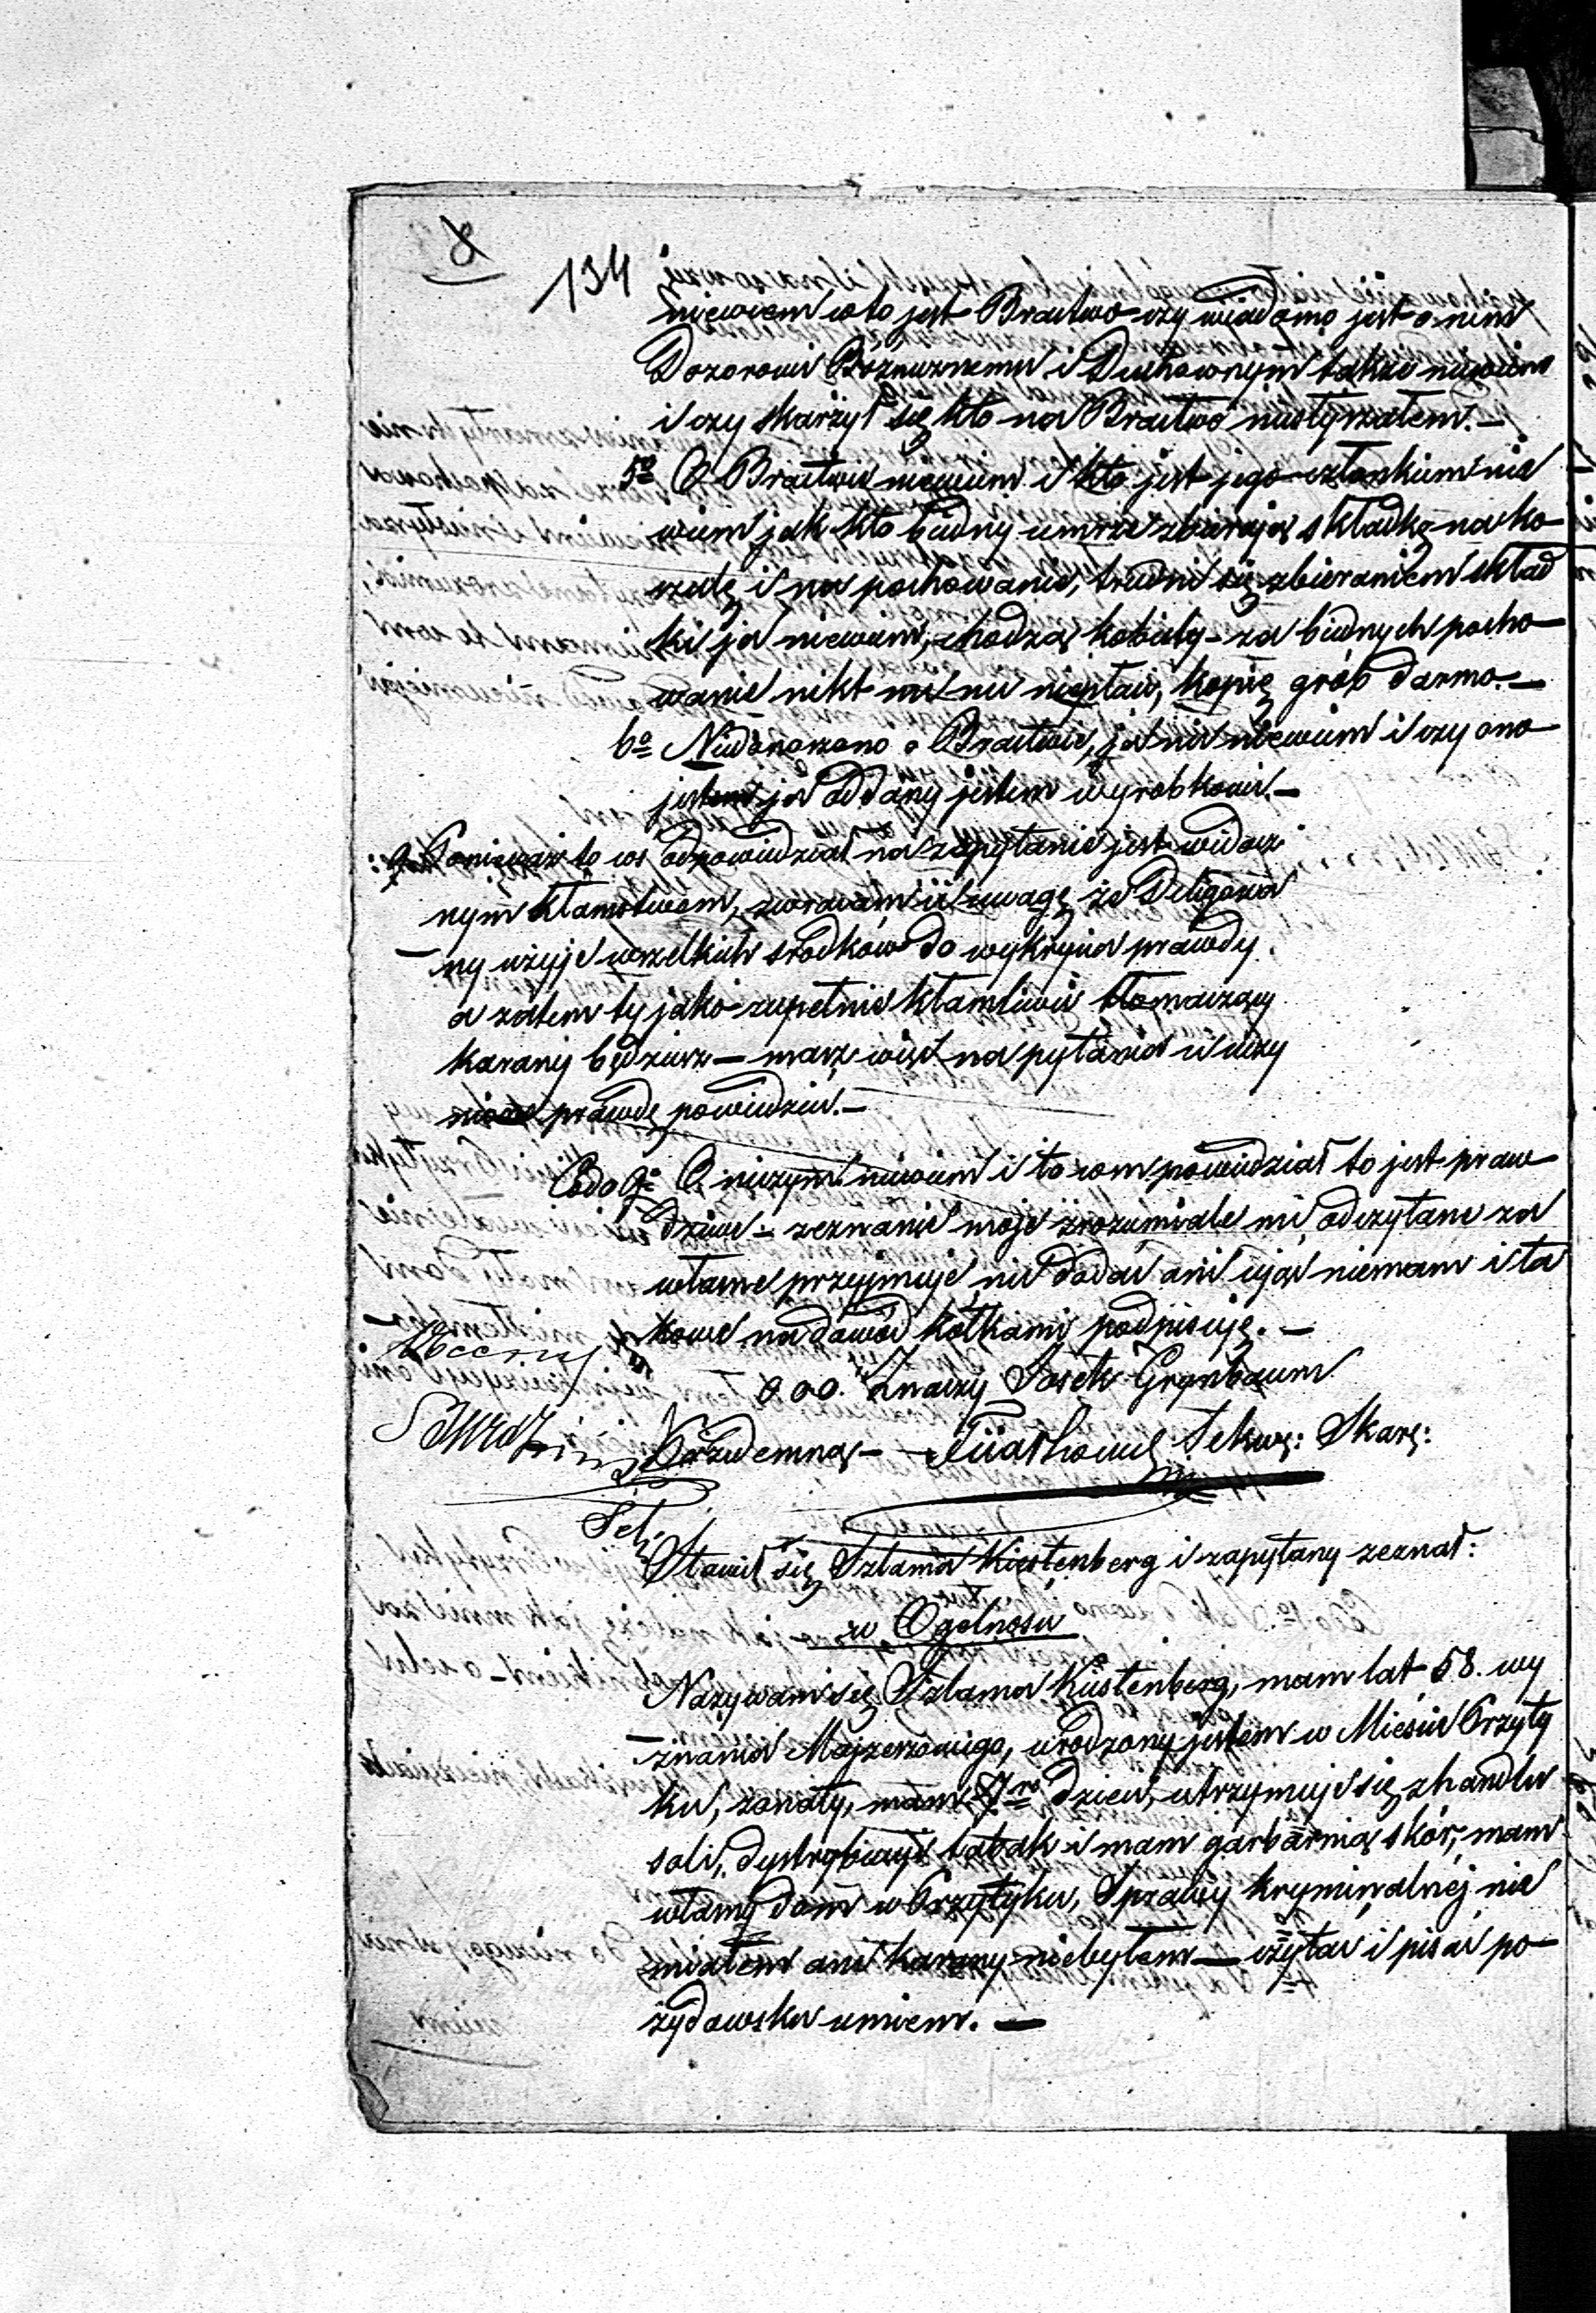 8
134
niewiem co to jest Bractwo czy wiadomo jest o nim
Dozorowi Bóżnicznemu i Duchownym także niewiem
i czy skarżył się kto na Bractwo niesłyszałem. —
5o O Bractwie niewiem i kto jest jego członkiem nie
wiem jak kto biedny umrze zbierają składkę na ko
szulę i na pochowanie, trudni się zbieraniem skład
ki ja niewiem, chodzą kobiety — za biednych pocho
wanie nikt mi nic niepłaci, kopię grób darmo. —
6o Niedonoszono o Bractwie, ja nic niewiem i czy ono
jestem ja oddany jestem wyrobkowi. —
Ponieważ to coś odpowiedział na zapytanie jest widocz
nym kłamstwem, zwracam ci uwagę że Delegowa
ny użyje wszelkich srodków do wykrycia prawdy
a zatem ty jako zupełnie kłamliwie tłomaczący
karany będziesz — masz więc na pytania ci uczy
nione prawdę powiedzieć. —
Co do 9o O niczym niewiem i to com powiedział to jest praw
dziwe — zeznanie moje zrozumiale mi odczytane za
własne przyjmuję, nic dodać ani ująć niemam i ta
kowe na dowód kółkami podpisuję. —
Obecny
o o o. Znaczy Josek Grynbaum
Przedemną —
Stawił się Szlama Kiestenberg i zapytany zeznał:
w Ogolnosci
Nazywam się Szlama Kiestenberg, mam lat 58. wy
znania Mojżeszowego, urodzony jestem w Mieście Przyty
ku, zonaty, mam 7ro dzieci, utrzymuje się z handlu
soli, dystrybucyi tabak i mam garbarnią skór, mam
własny dom w Przytyku, Sprawy kryminalnej nie
miałem ani karany niebyłem — czytać i pisać po
żydowsku umiem. —